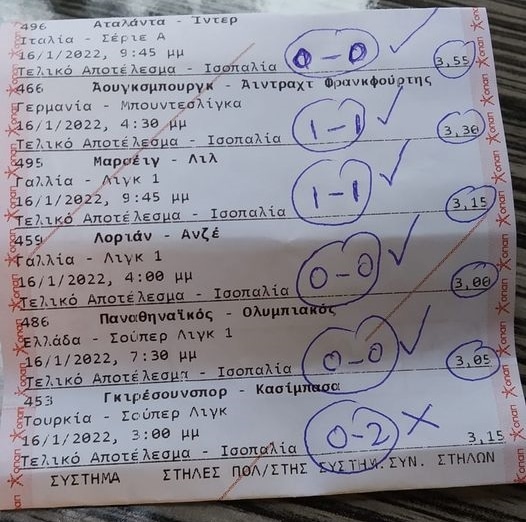 496 Αταλάντα - Ίντερ
Ιταλία - Σέριε Α
16/1/2022, 9:45 μμ 0-0
Τελικό Αποτέλεσμα - Ισοπαλία 3,55
466 Άουγκσμπουργκ - Άιντραχτ Φρανκφούρτης
Γερμανία - Μπουντεσλίγκα
16/1/2022, 4:30 μμ 1-1
Τελικό Αποτέλεσμα - Ισοπαλία 3,30
495 Μαρσέιγ - Λιλ
Γαλλία - Λιγκ 1
16/1/2022, 9:45 μμ 1-1
Τελικό Αποτέλεσμα - Ισοπαλία 3,15
459 Λοριάν - Ανζέ
Γαλλία - Λιγκ 1
16/1/2022, 4:00 μμ 0-0
Τελικό Αποτέλεσμα - Ισοπαλία 3,00
486 Παναθηναϊκός - Ολυμπιακός
Ελλάδα - Σούπερ Λιγκ 1
16/1/2022, 7:30 μμ 0-0
Τελικό Αποτέλεσμα - Ισοπαλία 3,05
453 Γκιρέσουνσπορ - Κασίμπασα
Τουρκία - Σούπερ Λιγκ
16/1/2022, 3:00 μμ 0-2 X
Τελικό Αποτέλεσμα - Ισοπαλία 3,15
ΣΥΣΤΗΜΑ ΣΤΗΛΕΣ ΠΟΛ/ΣΤΗΣ ΣΥΣΤΗΜ. ΣΥΝ. ΣΤΗΛΩΝ
οπαπ